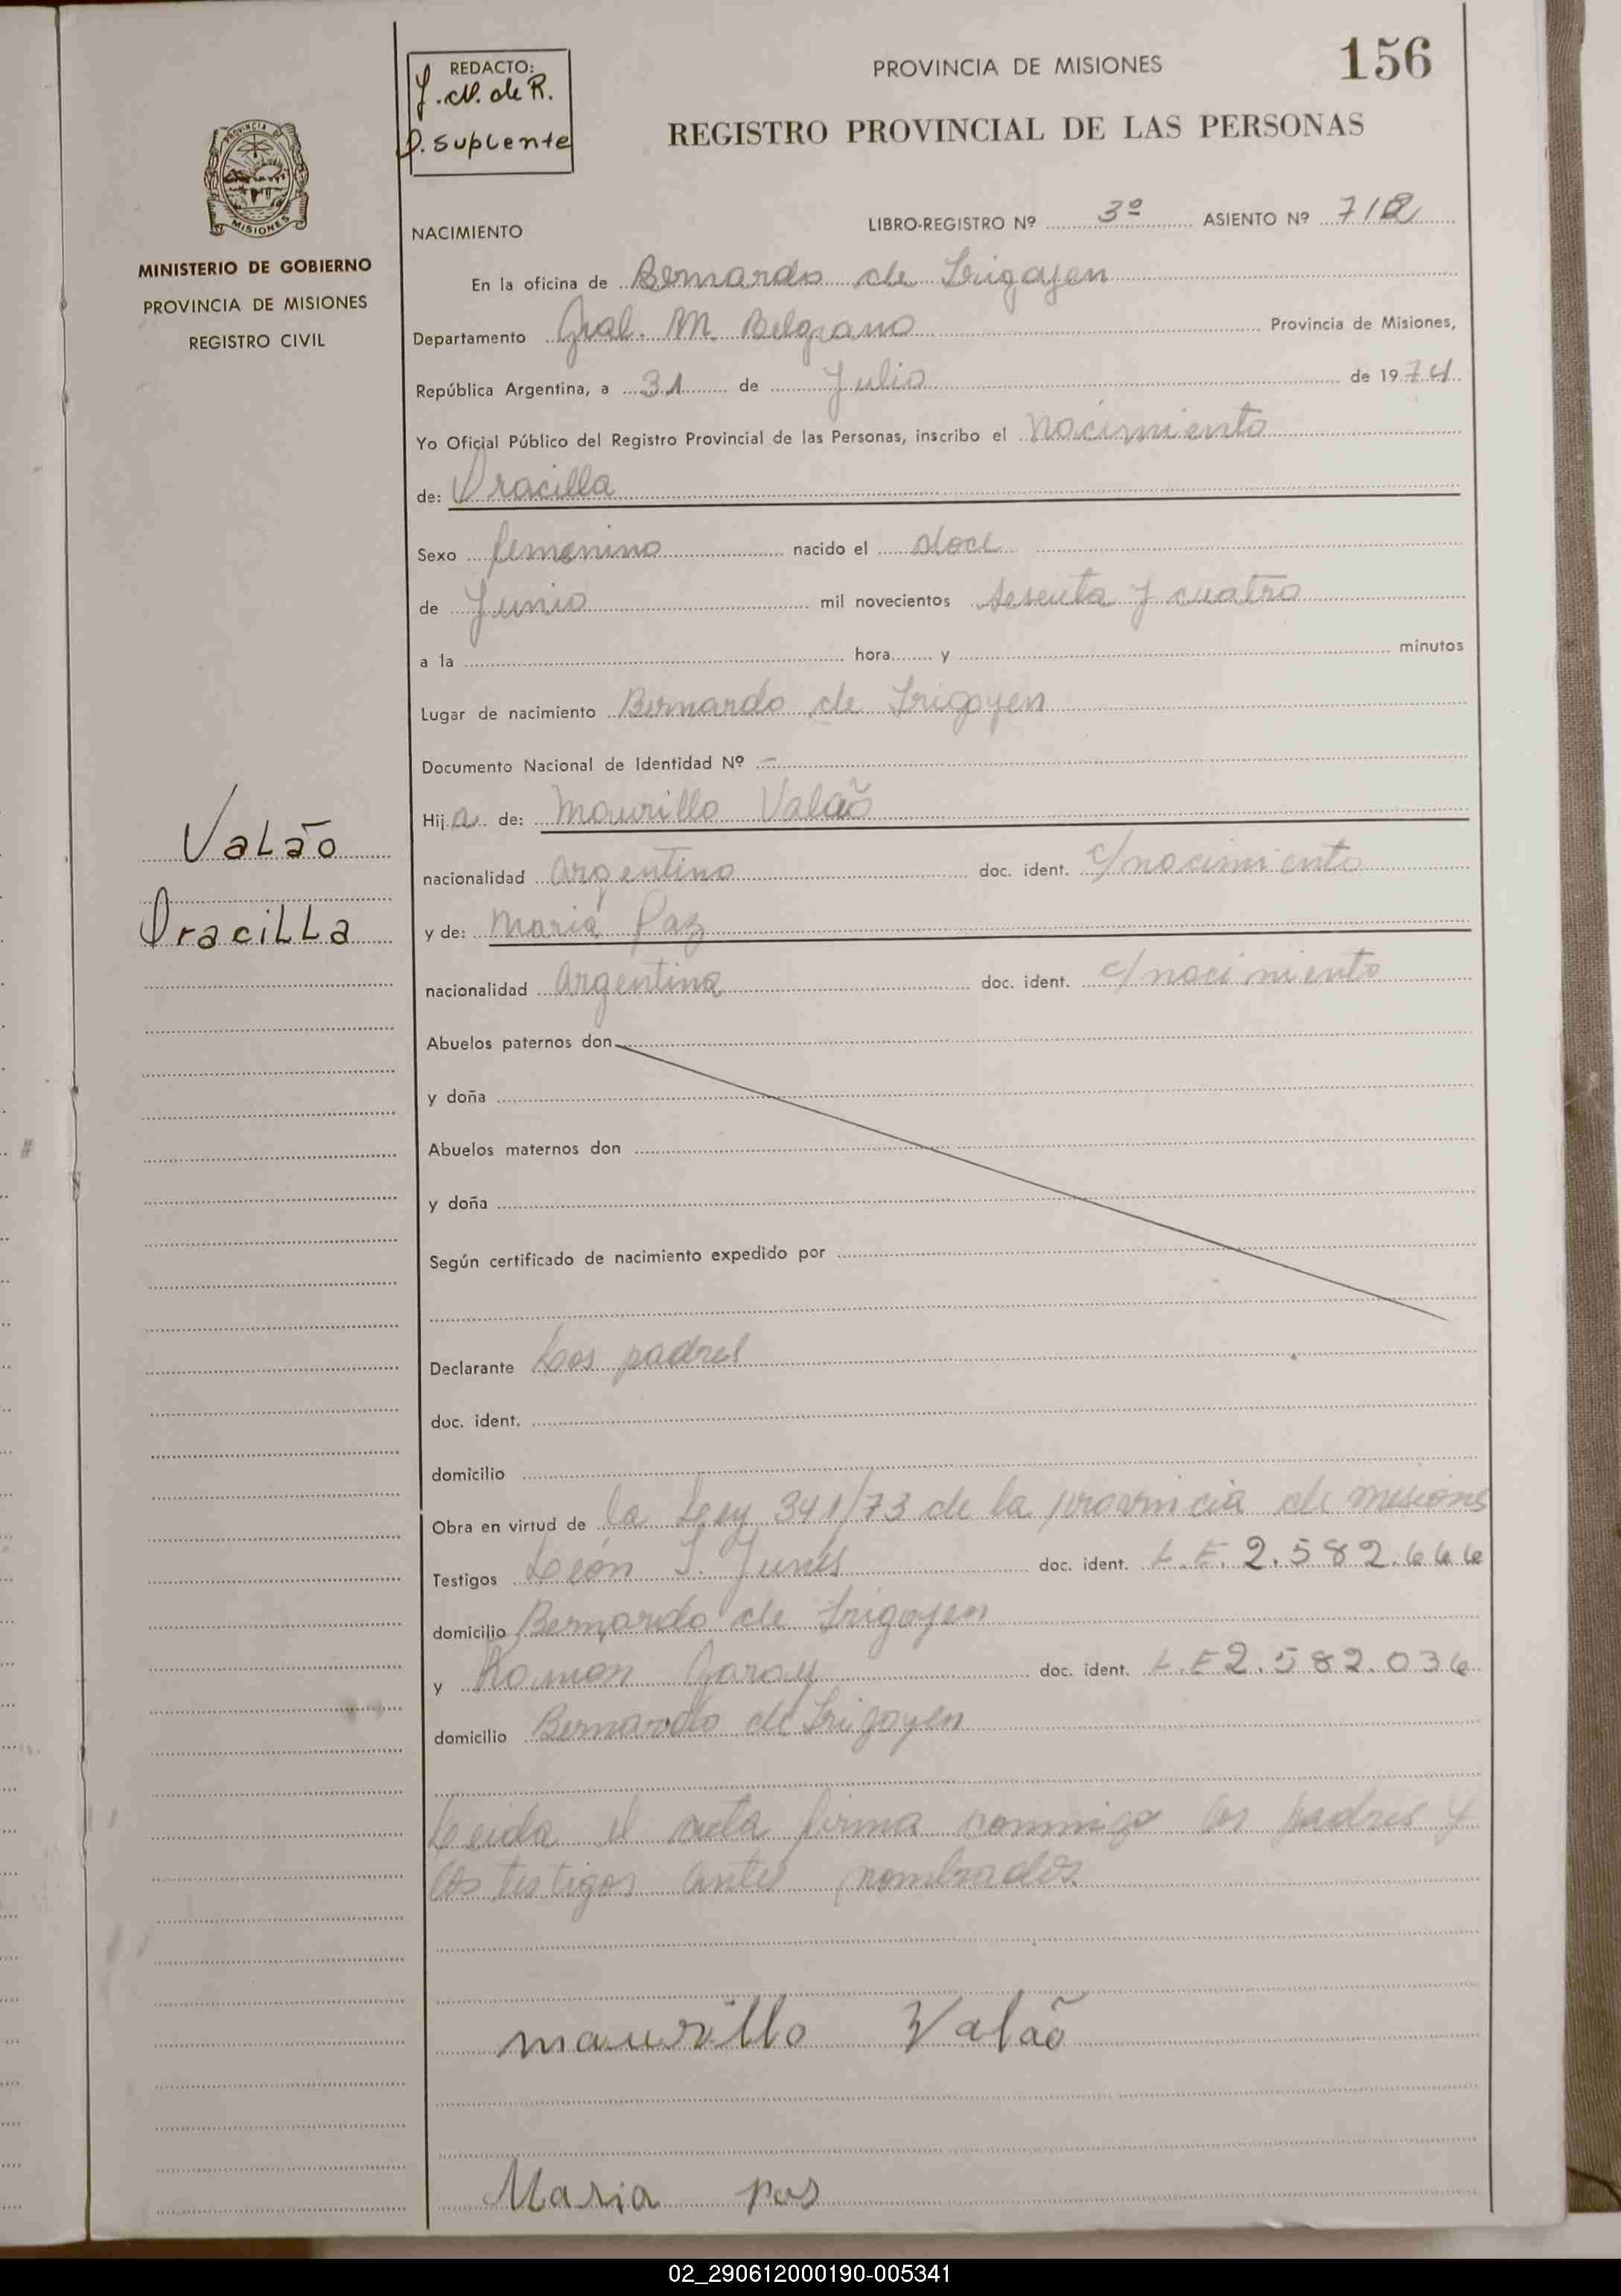 156
REDACTO:
J. N. de R.
O. suplente
PROVINCIA DE MISIONES
REGISTRO PROVINCIAL DE LAS PERSONAS
PROVINCIA DE
MISIONES
MINISTERIO DE GOBIERNO
PROVINCIA DE MISIONES
REGISTRO CIVIL
NACIMIENTO
LIBRO-REGISTRO Nº 3º ASIENTO Nº 712
En la oficina de Bernardo de Irigoyen
Departamento Gral. M. Belgrano Provincia de Misiones,
República Argentina, a 31 de Julio de 1974
Yo Oficial Público del Registro Provincial de las Personas, inscribo el nacimiento
de: Oracilla
Sexo femenino nacido el doce
de Junio mil novecientos sesenta y cuatro
a la hora y minutos
Lugar de nacimiento Bernardo de Irigoyen
Documento Nacional de Identidad Nº -
Hija de: Maurillo Valaõ
Valão
nacionalidad argentino doc. ident. c/nacimiento
Oracilla
y de: Maria Paz
nacionalidad argentina doc. ident. c/nacimiento
Abuelos paternos don
y doña
Abuelos maternos don
y doña
Según certificado de nacimiento expedido por
Declarante Los padres
doc. ident.
domicilio
Obra en virtud de la Ley 341/73 de la provincia de misiones
Testigos León S. Junes doc. ident. L.E. 2.582.666
domicilio Bernardo de Irigoyen
y Ramon Garay doc. ident. L.E 2.582.036
domicilio Bernardo de Irigoyen
Leida el acta firma conmigo los padres y
los testigos antes nombrados.
maurillo Valaõ
Maria pas
02_290612000190-005341